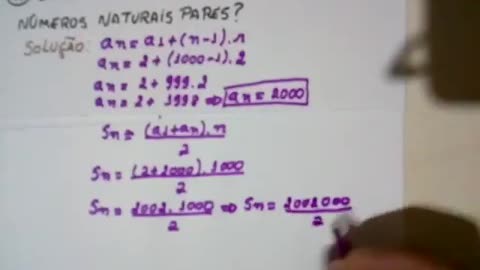 NÚMEROS NATURAIS PARES?
SOLUÇÃO: an = a1 + (n-1).r
an = 2 + (1000-1).2
an = 2 + 999.2
an = 2 + 1998 ⇒ an = 2000
Sn = (a1+an).n / 2
Sn = (2+2000).1000 / 2
Sn = 2002.1000 / 2 ⇒ Sn = 2002000 / 2